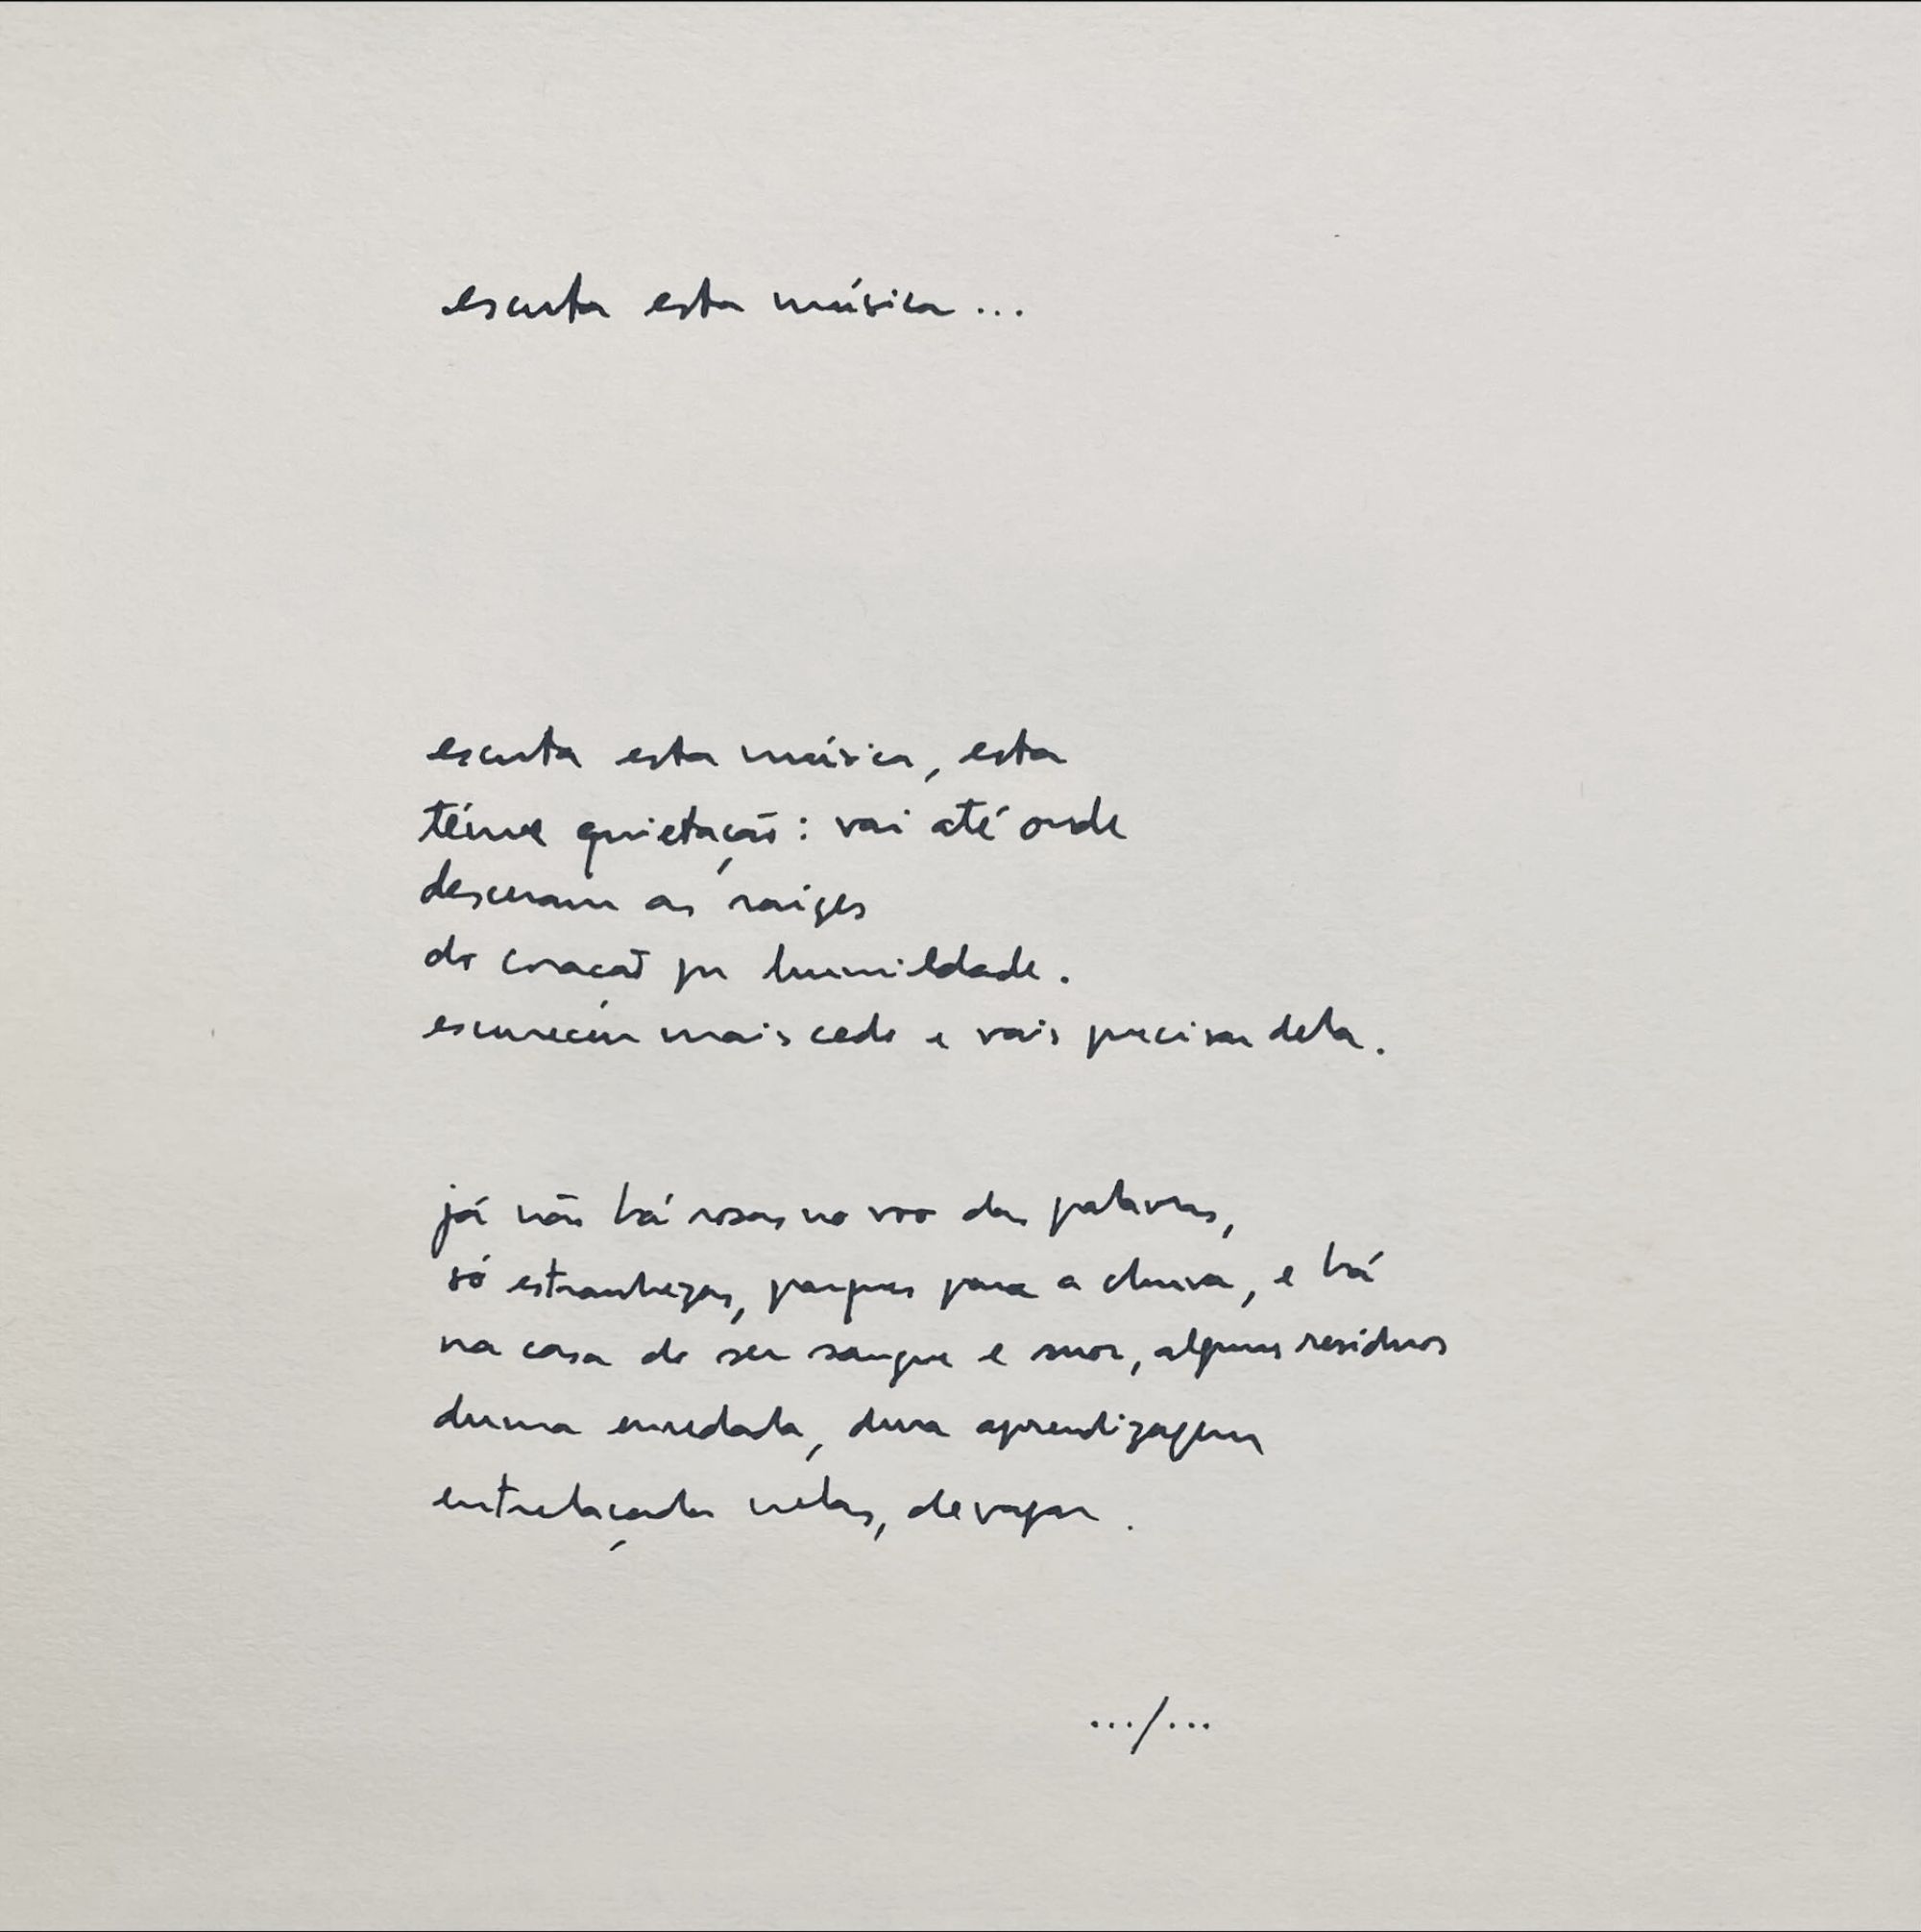 escuta esta música...
escuta esta música, esta
ténue quietação: vai até onde
desceram as raízes
do coração por humildade.
escureceu mais cedo e vais precisar dela.
já não há rosas no voo das palavras,
só estranhezas, parques para a chuva, e há
na casa do ser sangue e suor, alguns resíduos
duma enredada, dura aprendizagem
entrelaçada nelas, devagar.
.../...